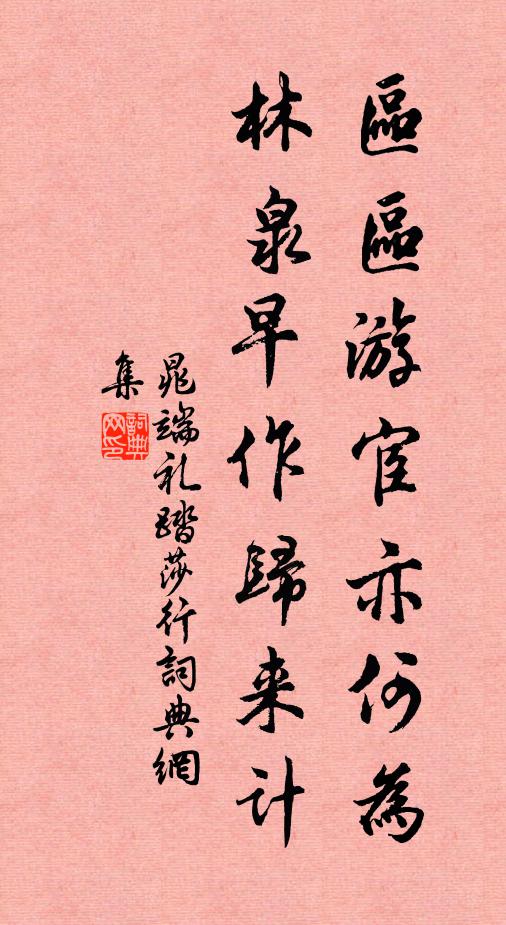 區區游宦亦何為
林泉早作歸來計
晁端礼踏莎行詞典網
集
詞典
网印